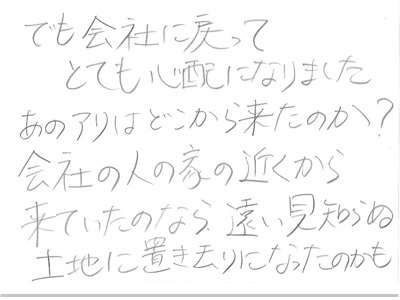 でも会社に戻って
とても心配になりました
あのアリはどこから来たのか？
会社の人の家の近くから
来ていたのなら、遠い見知らぬ
土地に置き去りになったのかも